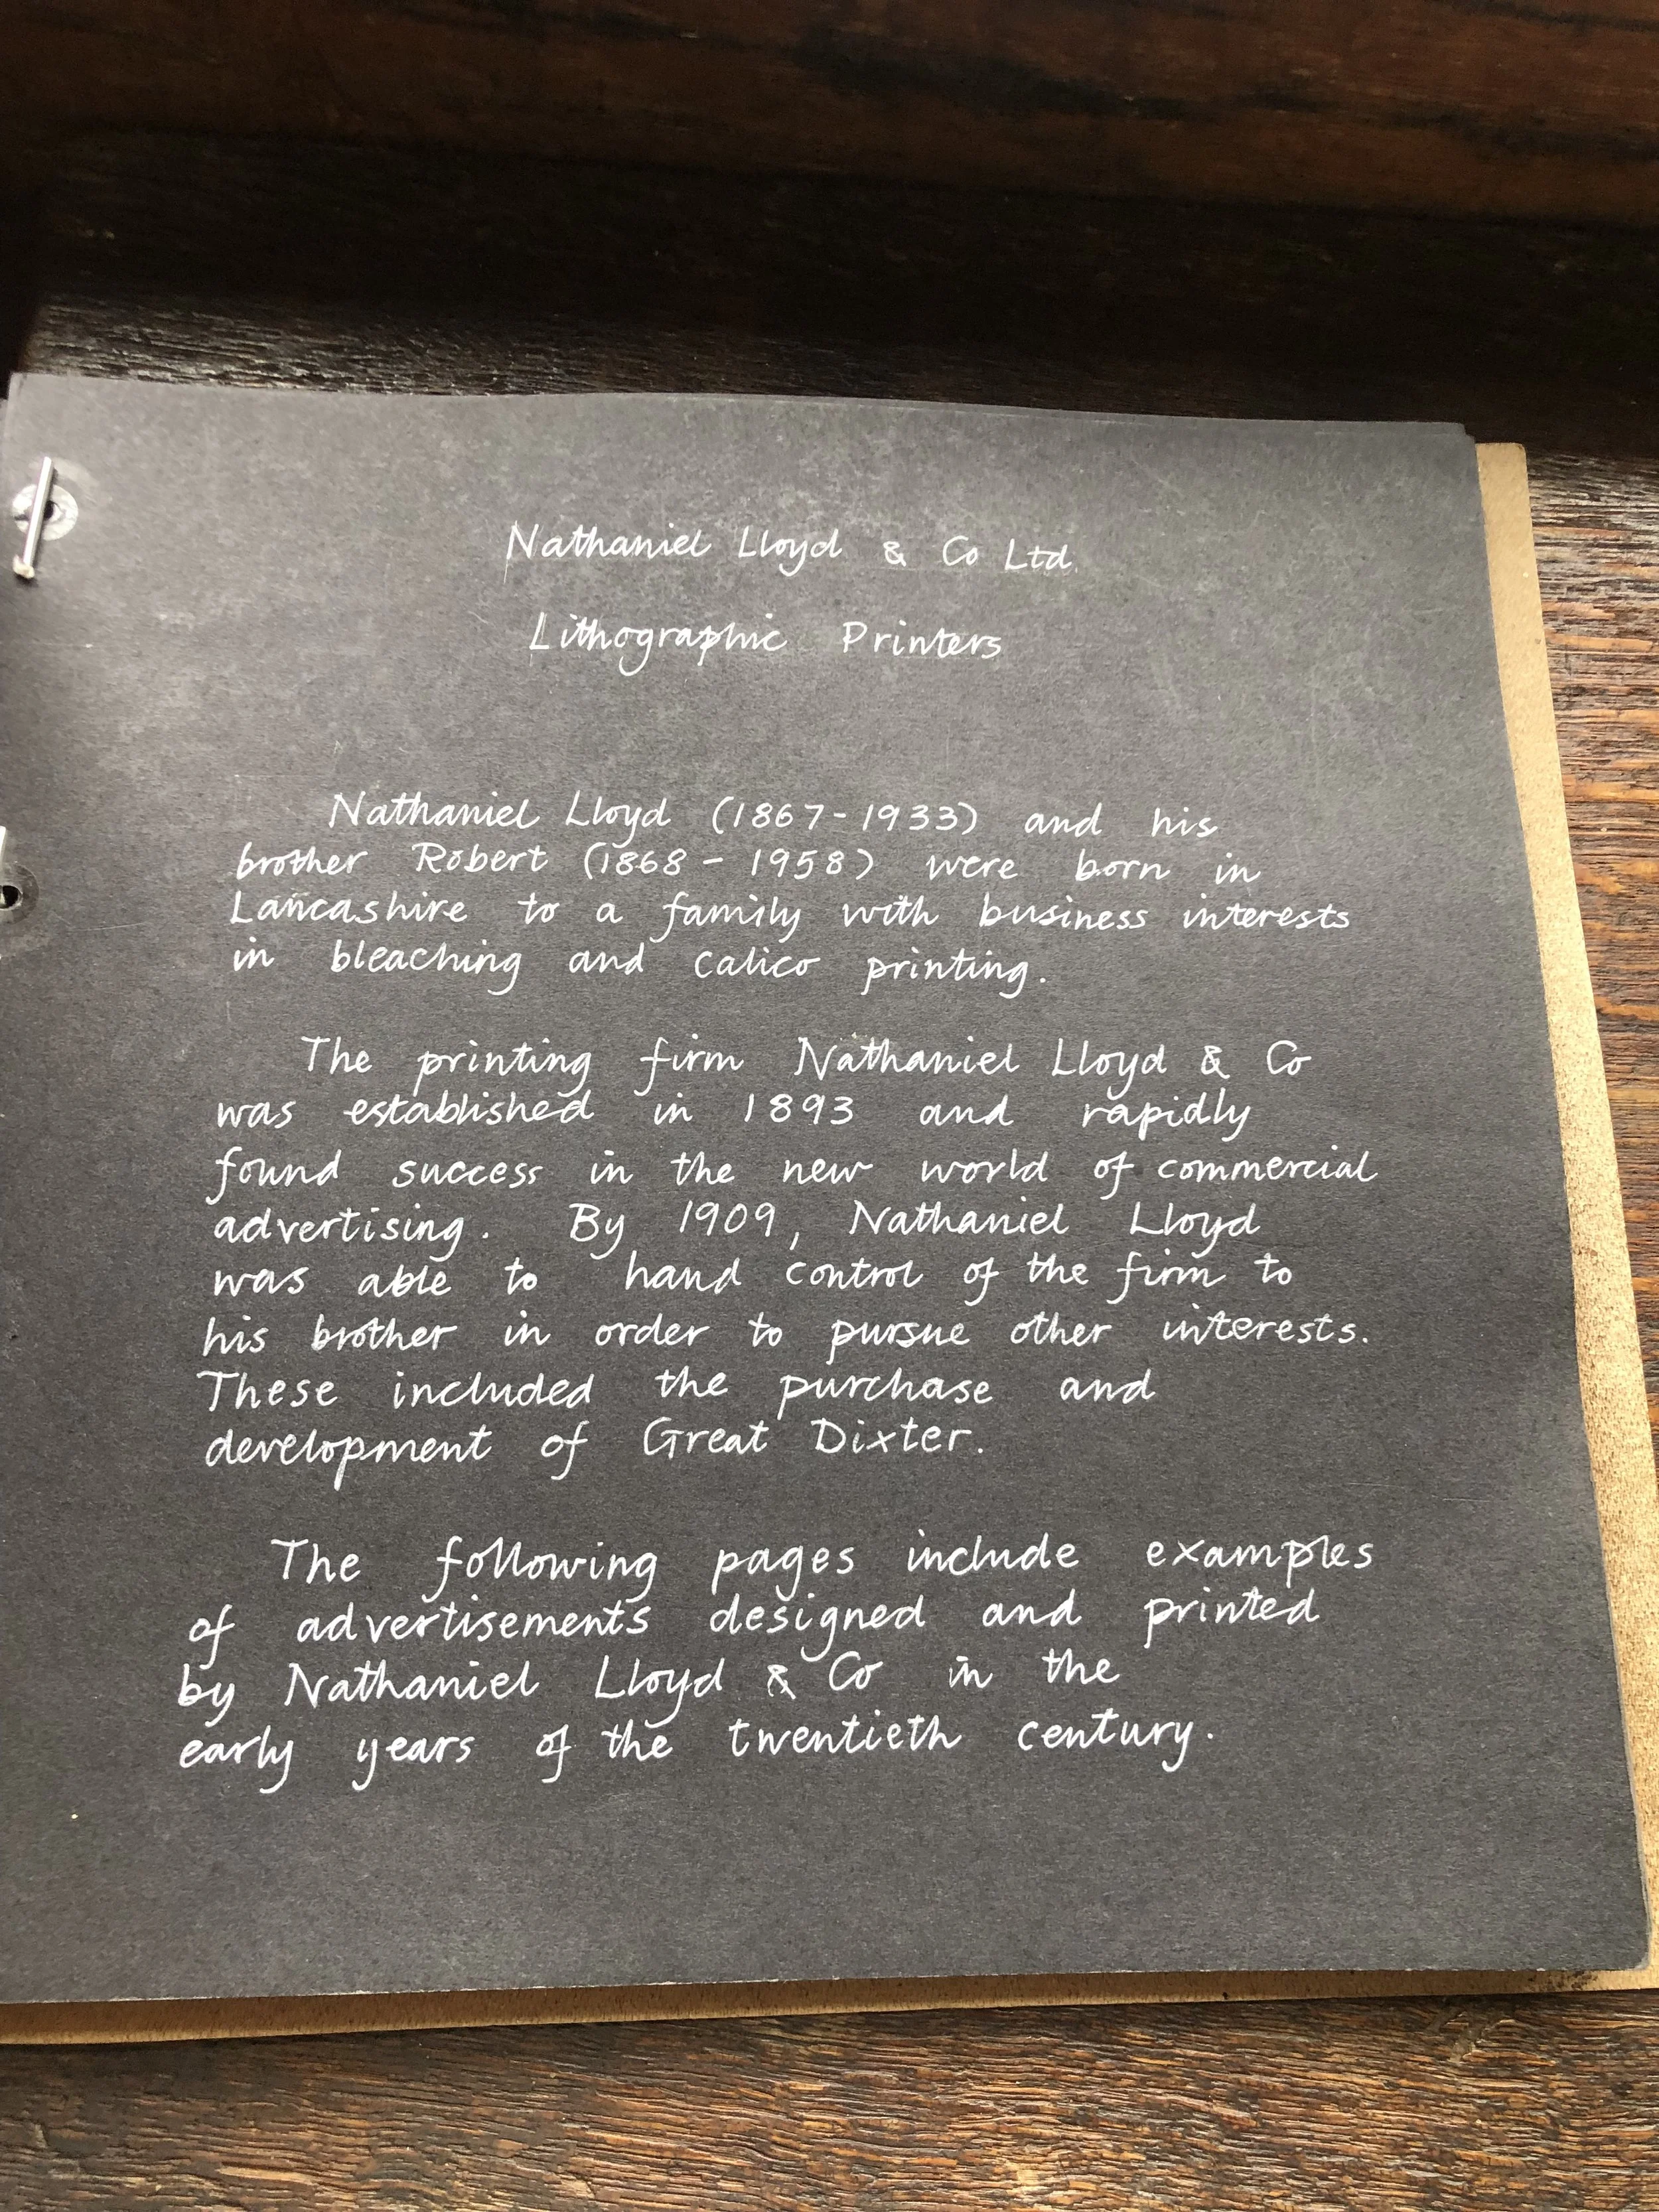 Nathaniel Lloyd & Co Ltd.
Lithographic Printers
Nathaniel Lloyd (1867-1933) and his
brother Robert (1868 - 1958) were born in
Lancashire to a family with business interests
in bleaching and calico printing.
The printing firm Nathaniel Lloyd & Co
was established in 1893 and rapidly
found success in the new world of commercial
advertising. By 1909, Nathaniel Lloyd
was able to hand control of the firm to
his brother in order to pursue other interests.
These included the purchase and
development of Great Dixter.
The following pages include examples
of advertisements designed and printed
by Nathaniel Lloyd & Co in the
early years of the twentieth century.